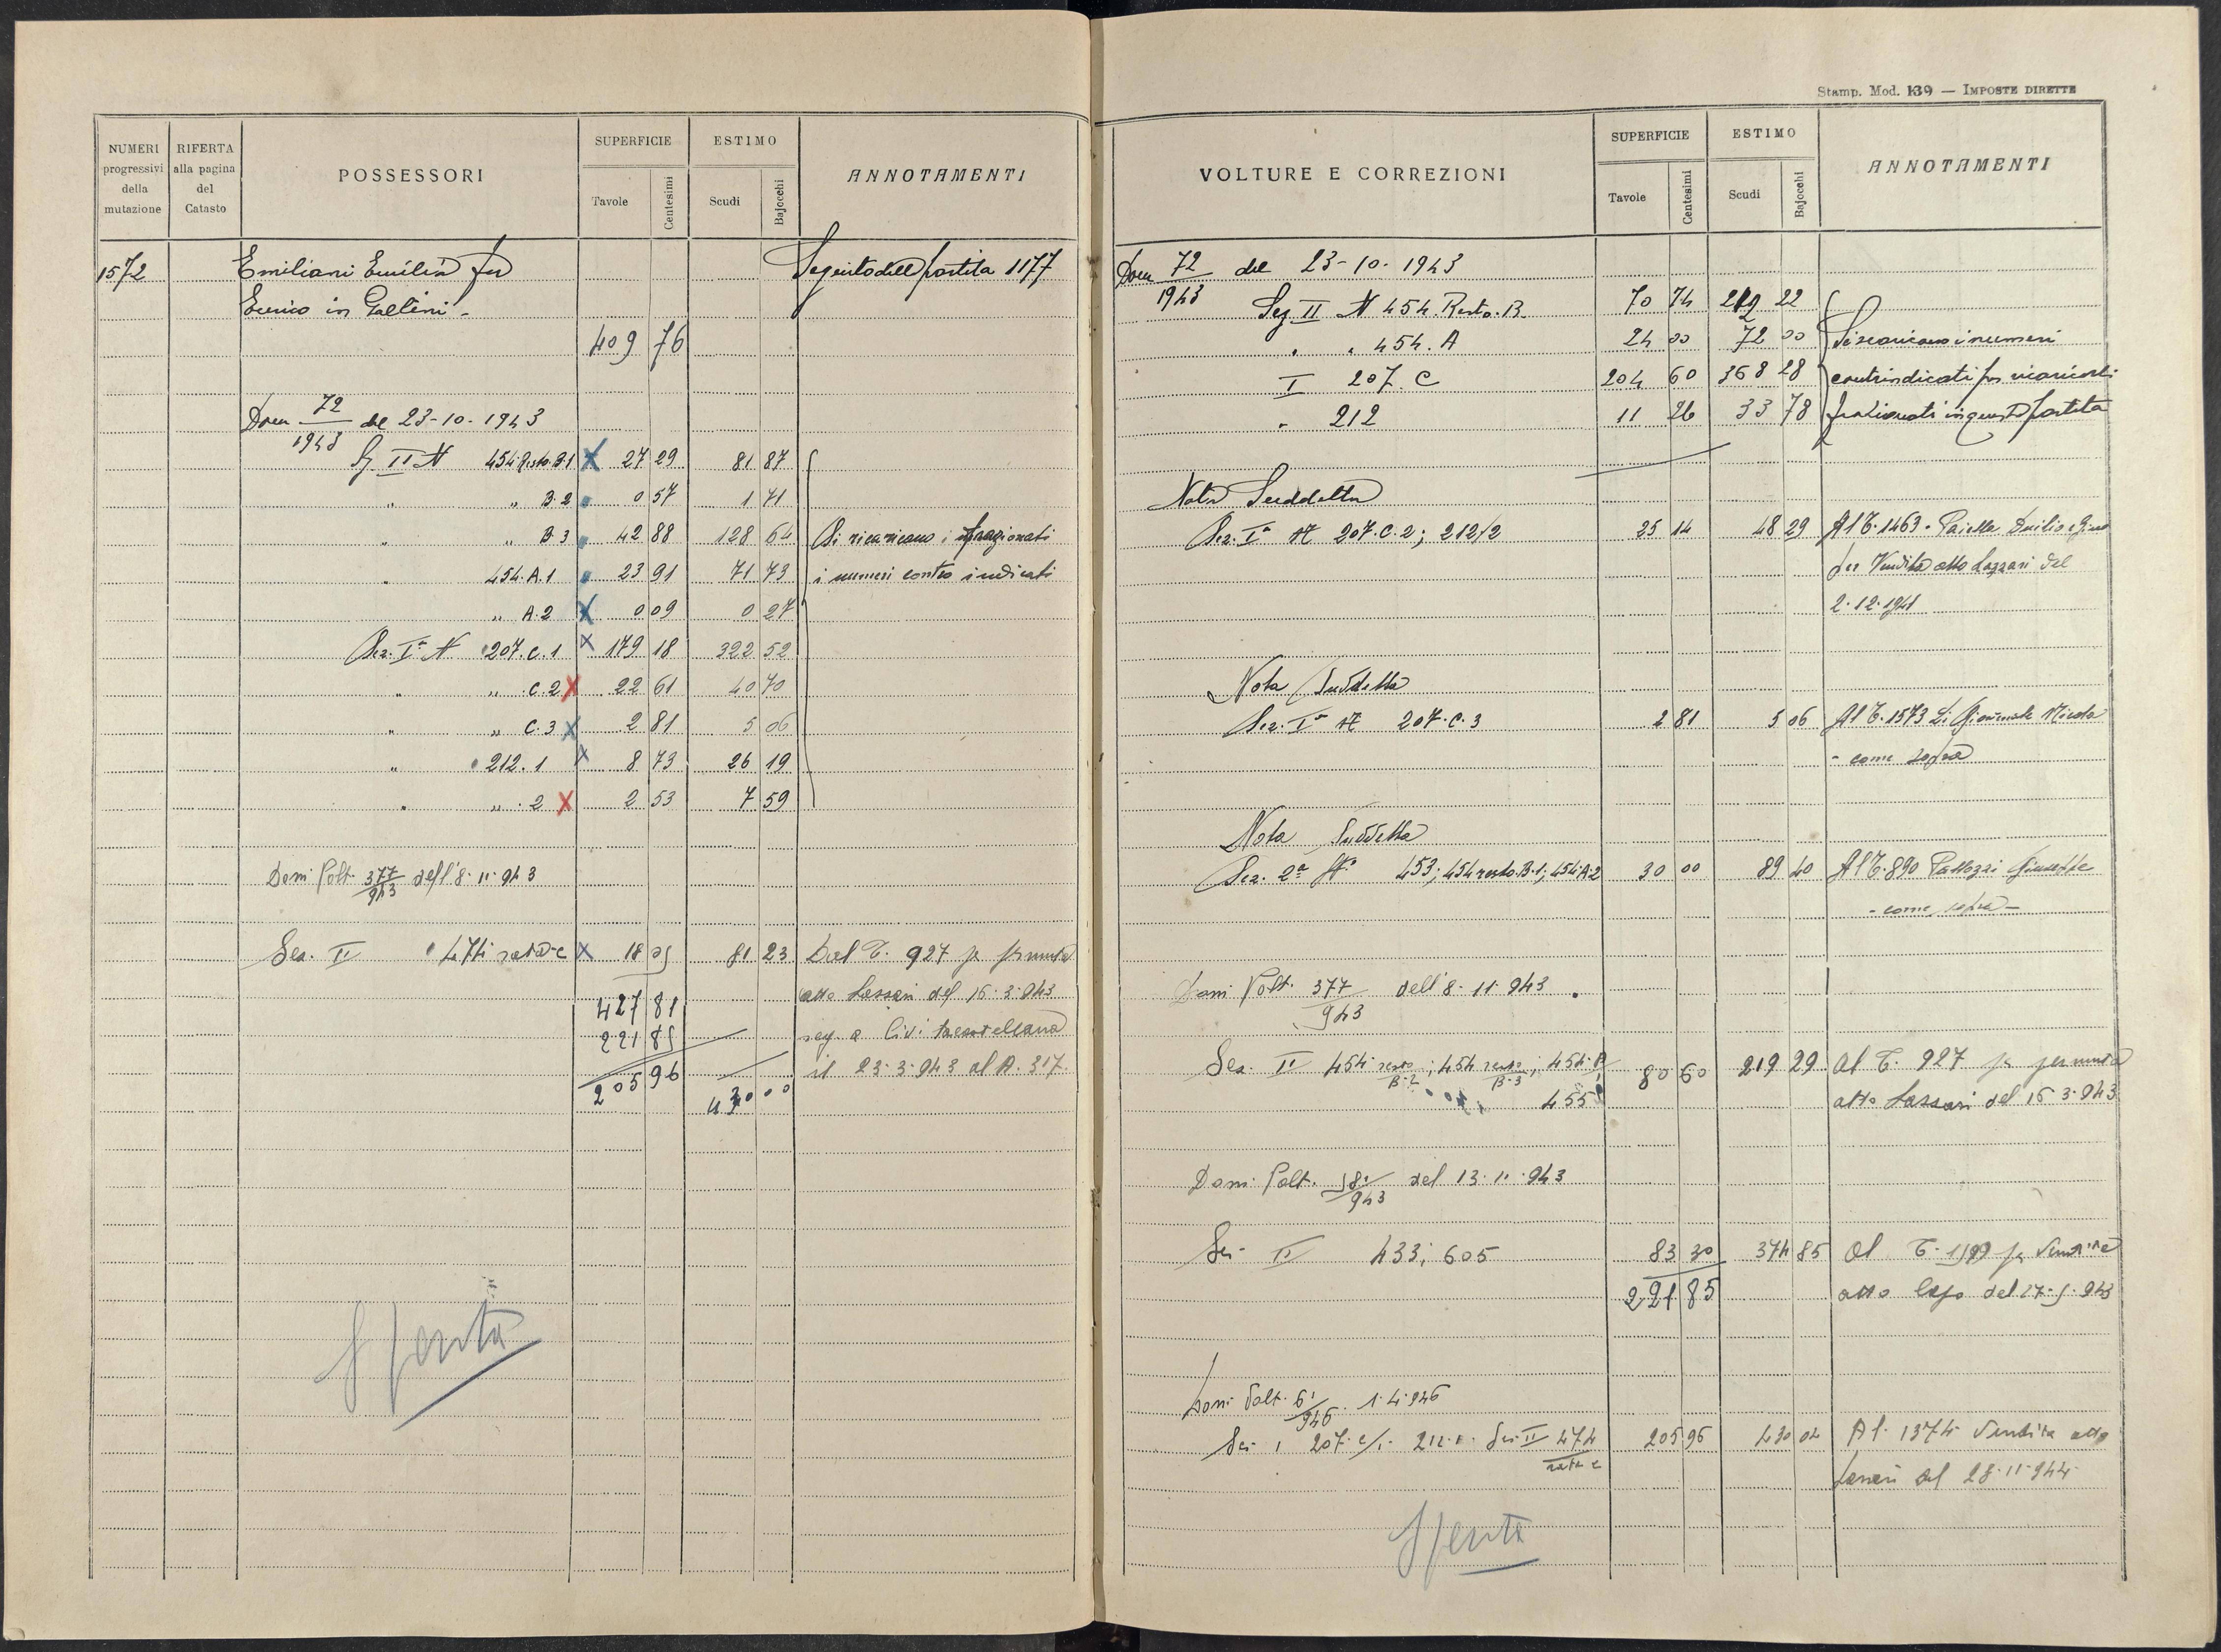 Stamp. Mod. 139 — IMPOSTE DIRETTE
NUMERI progressivi della mutazione
RIFERTA alla pagina del Catasto
POSSESSORI
SUPERFICIE
Tavole
Centesimi
ESTIMO
Scudi
Bajocchi
ANNOTAMENTI
1572 Emiliani Emilia fu Seguito della partita 1177
in
409 76
Dom 72/1943 del 23-10-1943
Sez II N 454 Resto.B.1 X 27 29 81 87
" " B.2 0 57 1 71
" " B.3 42 88 128 64 Si ricaricano i frazionati
" 454.A.1 23 91 71 73 i numeri contro indicati
" A.2 X 0 09 0 27
Sez. Iª N 207.C.1 X 179 18 322 52
" " C.2 X 22 61 40 70
" " C.3 X 2 81 5 06
" 212.1 X 8 73 26 19
" " .2 X 2 53 7 59
Dom Volt. 377/943 dell'8-11-943
Sez. II 474 rata c X 18 05 81 23 Dal T. 927 per permuta
427 81 atto Lazzari del 15-3-943
221 85 reg. a Civitacastellana
205 96 il 23-3-943 al N. 317
430 00
Spenta
VOLTURE E CORREZIONI
SUPERFICIE
Tavole
Centesimi
ESTIMO
Scudi
Bajocchi
ANNOTAMENTI
Dom 72/1943 del 23-10-1943
Sez II N 454 Resto.B. 70 74 212 22
" " 454.A 24 00 72 00 Si scaricano i numeri
I 207.C 204 60 368 28 controindicati per ricaricarli
" 212 11 26 33 78 frazionati in questa partita
Nota Suddetta
Sez. Iª N 207.C.2; 212/2 25 14 48 29 Al T. 1463
per Vendita atto Lazzari del
2-12-1941
Nota Suddetta
Sez. Iª N 207.C.3 2 81 5 06 Al T. 1573
- come sopra
Nota Suddetta
Sez. 2ª N. 453; 454 resto.B.1; 454.A.2 30 00 89 40 Al T. 890 Giuseppe
- come sopra -
Dom Volt. 377/943 dell'8-11-943
Sez. II 454 resto B.2; 454 resto B.3; 454.A 1 80 60 219 29 Al T. 927 per permuta
455 atto Lazzari del 15-3-943
Dom. Volt. 381/943 del 13-11-943
Sez. II 433; 605 83 30 374 85 Al T. per Vendita
221 85 atto del 27-5-943
Dom Volt. 61/946 1-4-946
Sez I 207.c/1 212.1 Sez II 474 rata c 205 96 430 04 Al 1374 Vendita atto
del 28-11-944
Spenta